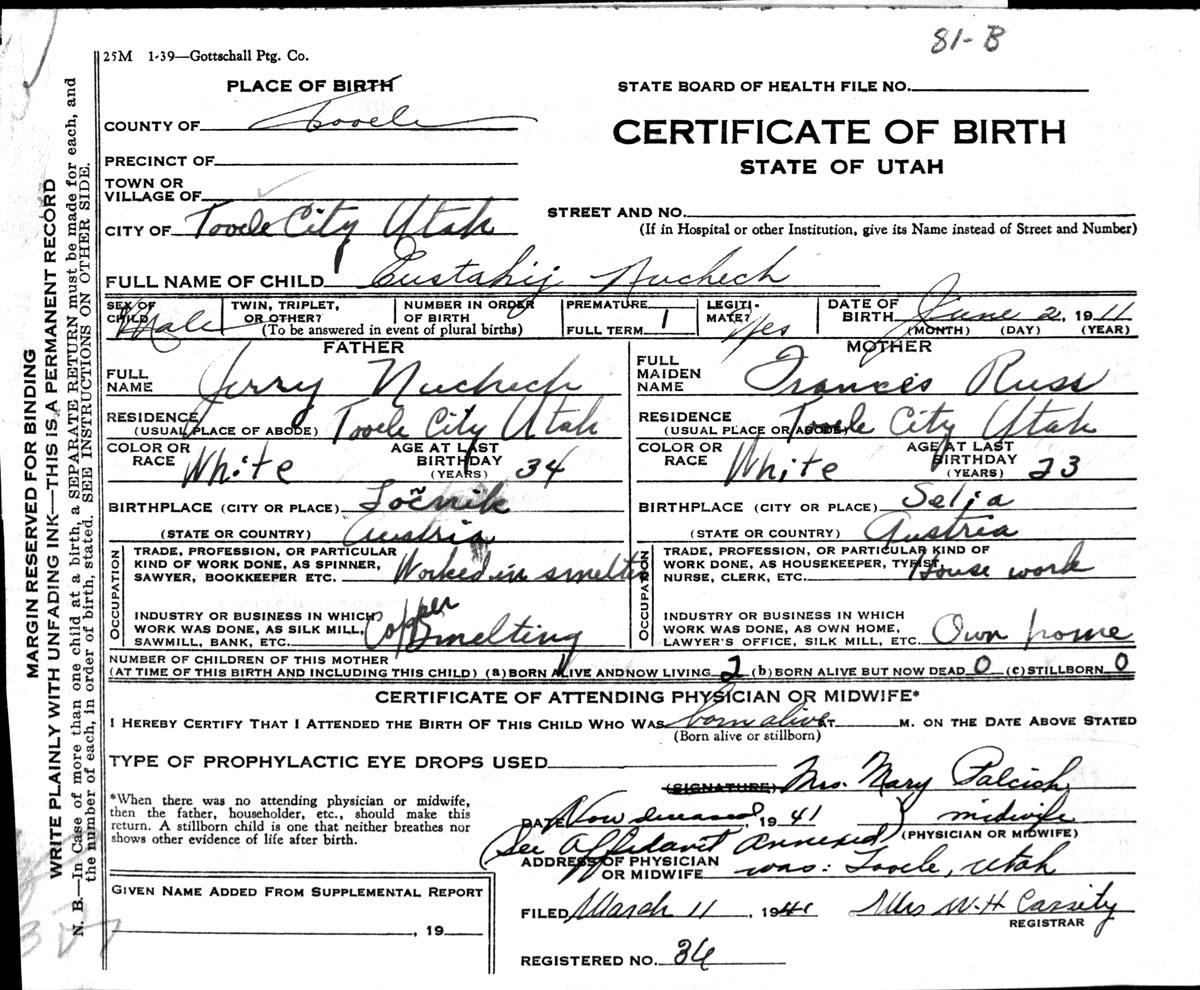 81-B
25M 1-39—Gottschall Ptg. Co.
PLACE OF BIRTH
STATE BOARD OF HEALTH FILE NO.
COUNTY OF Tooele
CERTIFICATE OF BIRTH
STATE OF UTAH
PRECINCT OF
TOWN OR
VILLAGE OF
STREET AND NO.
(If in Hospital or other Institution, give its Name instead of Street and Number)
CITY OF Tooele City Utah
FULL NAME OF CHILD Eustahij Nuchech
SEX OF CHILD Male
TWIN, TRIPLET, OR OTHER?
NUMBER IN ORDER OF BIRTH
(To be answered in event of plural births)
PREMATURE
FULL TERM 1
LEGITI-MATE? Yes
DATE OF BIRTH June 2, 1911
(MONTH) (DAY) (YEAR)
FATHER
FULL NAME Jerry Nuchech
RESIDENCE (USUAL PLACE OF ABODE) Tooele City Utah
COLOR OR RACE White
AGE AT LAST BIRTHDAY (YEARS) 34
BIRTHPLACE (CITY OR PLACE) Ločnik
(STATE OR COUNTRY) Austria
OCCUPATION
TRADE, PROFESSION, OR PARTICULAR
KIND OF WORK DONE, AS SPINNER,
SAWYER, BOOKKEEPER ETC. Worked in smelter
INDUSTRY OR BUSINESS IN WHICH
WORK WAS DONE, AS SILK MILL,
SAWMILL, BANK, ETC. Copper Smelting
MOTHER
FULL MAIDEN NAME Frances Russ
RESIDENCE (USUAL PLACE OR ABODE) Tooele City Utah
COLOR OR RACE White
AGE AT LAST BIRTHDAY (YEARS) 23
BIRTHPLACE (CITY OR PLACE) Selja
(STATE OR COUNTRY) Austria
OCCUPATION
TRADE, PROFESSION, OR PARTICULAR KIND OF
WORK DONE, AS HOUSEKEEPER, TYPIST,
NURSE, CLERK, ETC. House work
INDUSTRY OR BUSINESS IN WHICH
WORK WAS DONE, AS OWN HOME,
LAWYER'S OFFICE, SILK MILL, ETC. Own home
NUMBER OF CHILDREN OF THIS MOTHER
(AT TIME OF THIS BIRTH AND INCLUDING THIS CHILD) (a) BORN ALIVE AND NOW LIVING 2 (b) BORN ALIVE BUT NOW DEAD 0 (c) STILLBORN 0
CERTIFICATE OF ATTENDING PHYSICIAN OR MIDWIFE*
I HEREBY CERTIFY THAT I ATTENDED THE BIRTH OF THIS CHILD WHO WAS born alive AT M. ON THE DATE ABOVE STATED
(Born alive or stillborn)
TYPE OF PROPHYLACTIC EYE DROPS USED
(SIGNATURE) Mrs. Mary Palcich
*When there was no attending physician or midwife,
then the father, householder, etc., should make this
return. A stillborn child is one that neither breathes nor
shows other evidence of life after birth.
DATE Now deceased, 1941 midwife
(See Affidavit Annexed) (PHYSICIAN OR MIDWIFE)
ADDRESS OF PHYSICIAN
OR MIDWIFE was: Tooele, Utah
GIVEN NAME ADDED FROM SUPPLEMENTAL REPORT
, 19
FILED March 11, 1941 Mrs W. H. Cassity
REGISTRAR
REGISTERED NO. 36
MARGIN RESERVED FOR BINDING
WRITE PLAINLY WITH UNFADING INK—THIS IS A PERMANENT RECORD
N. B.—In Case of more than one child at a birth, a SEPARATE RETURN must be made for each, and
the number of each, in order of birth, stated. SEE INSTRUCTIONS ON OTHER SIDE.